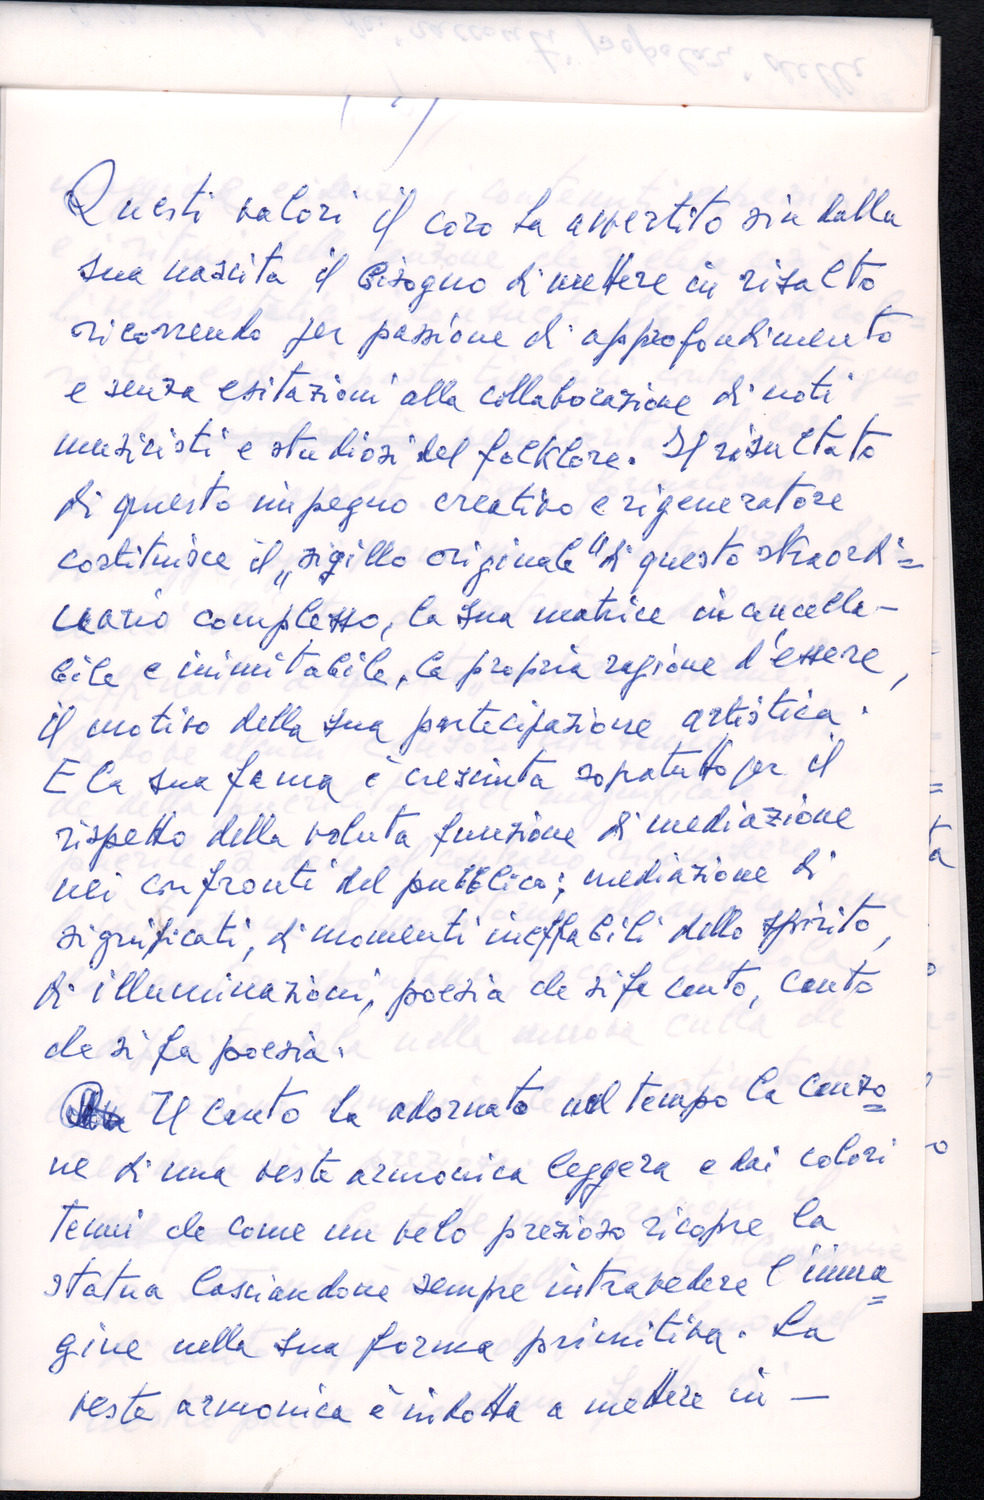 Questi valori il coro ha avvertito sin dalla
sua nascita il bisogno di mettere in risalto
ricorrendo per passione di approfondimento
e senza esitazioni alla collaborazione di noti
musicisti e studiosi del folklore. Il risultato
di questo impegno creativo e rigeneratore
costituisce il „sigillo originale“ di questo straordi=
nario complesso, la sua matrice incancella-
bile e inimitabile, la propria ragione d'essere,
il motivo della sua partecipazione artistica.
E la sua fama è cresciuta sopratutto per il
rispetto della voluta funzione di mediazione
nei confronti del pubblico; mediazione di
significati, di momenti ineffabili dello spirito,
di illuminazioni, poesia che si fa canto, canto
che si fa poesia.
Il canto ha adornato nel tempo la canzo=
ne di una veste armonica leggera e dai colori
tenui che come un velo prezioso ricopre la
statua lasciandone sempre intravedere l'imma=
gine nella sua forma primitiva. La
veste armonica è indotta a mettere in -